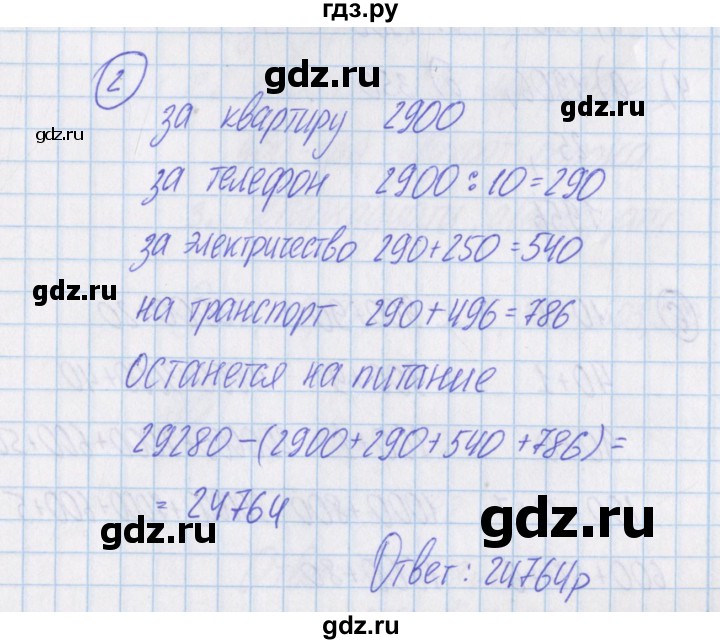 гдз.ру
2
gdz.ru
за квартиру 2900
gdz.ru
gdz.ru
за телефон 2900 : 10 = 290
за электричество 290 + 250 = 540
gdz.ru
gdz.ru
на транспорт 290 + 496 = 786
Останется на питание
29280 - (2900 + 290 + 540 + 786) =
= 24764
gdz.ru
gdz.ru
Ответ: 24764р
gdz.ru
gdz.ru